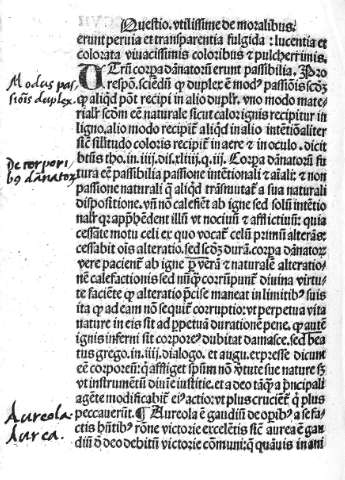 Questio. vtilissime de moralibus:
erunt peruia et transparentia fulgida : lucentia et
colorata viuacissimis coloribus ⁊ pulcherrimis.
Modus pas-
sionis duplex.
Vtrũ corpa dãnatorũ erunt passibilia.
respõ. sciẽdũ ꝙ duplex ẽ modꝰ passiõis scꝫ
ꝙ aliqd põt recipi in alio duplr. vno modo mate-
rialr scꝫm eẽ naturale sicut calor ignis recipitur in
ligno. alio modo recipit̃ aliqd in alio intẽtiõaliter
similitudo coloris recipit̃ in aere ⁊ in oculo. dicit
btũs tho. in .iiij. dis. xliiij. q. iij. Corpa dãnatorũ fu
De corpori-
bꝰ dãnatorꝫ
tura eẽ passibilia passione intẽtionali ⁊ aĩali: ⁊ non
passione naturali q̃ aliqd trãsmutat̃ a sua naturali
dispositione. vñ nõ calefiẽt ab igne sed solũ intẽtio
nalr qꝛ apphẽdent illũ vt nociuũ ⁊ afflictiuũ: quia
cessãte motu celi ex quo vocat̃ celũ primũ alterãs:
cessabit oĩs alteratio. sed scꝫm durã. corpa dãnatoꝝ
vere pacient̃ ab igne ꝑ verã ⁊ naturalẽ alteratio-
nẽ calefactionis sed nũꝙ corrũpunt̃ diuina virtu-
te faciẽte ꝙ alteratio pcise maneat in limitibꝰ suis
ita ꝙ ad eam nõ sequit̃ corruptio: vt perpetua vita
nature in eis sit ad ppetuã durationẽ pene. ꝙ autẽ
ignis inferni sit corpore dubitat damasce. sed bea
tus grego. in .iiij. dialogo. et augu. expresse dicunt
eẽ corporeũ: ꝙ affliget spũm nõ vtute sue nature sꝫ
vt instrumẽtũ diuĩe iustitie. et a deo tãꝙ a pncipali
agẽte modificabit̃ eiꝰ actio: vt plus crucient̃ q̃ plus
Aureola
peccauerũt. ¶ Aureola ẽ gaudiũ de opibꝰ a se fa-
Aurea.
ctis hñtibꝰ rõne victorie excelẽtis sicut̃ aurea ẽ gau
diũ de deo debitũ victorie cõmuni: ꝙ quãuis in ani